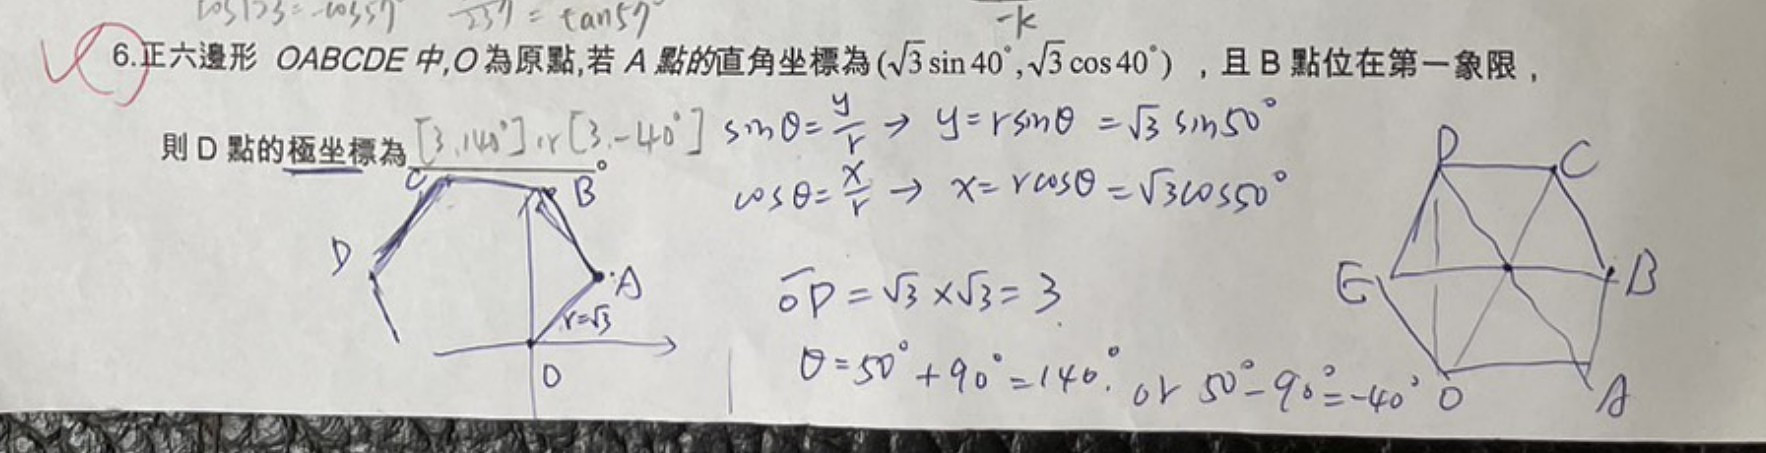 cos123°=-cos57°
= tan57°
-k
6.正六邊形 OABCDE 中,O 為原點,若 A 點的直角坐標為(√3 sin 40°,√3 cos 40°) ，且 B 點位在第一象限，
則 D 點的極坐標為 [3,140°] or [3,-40°]
sinθ=y/r → y=rsinθ =√3 sin50°
cosθ=x/r → x=rcosθ=√3cos50°
C B
D A
r=√3
O
OD=√3×√3=3
θ=50°+90°=140° or 50°-90°=-40°
D C
E B
O A